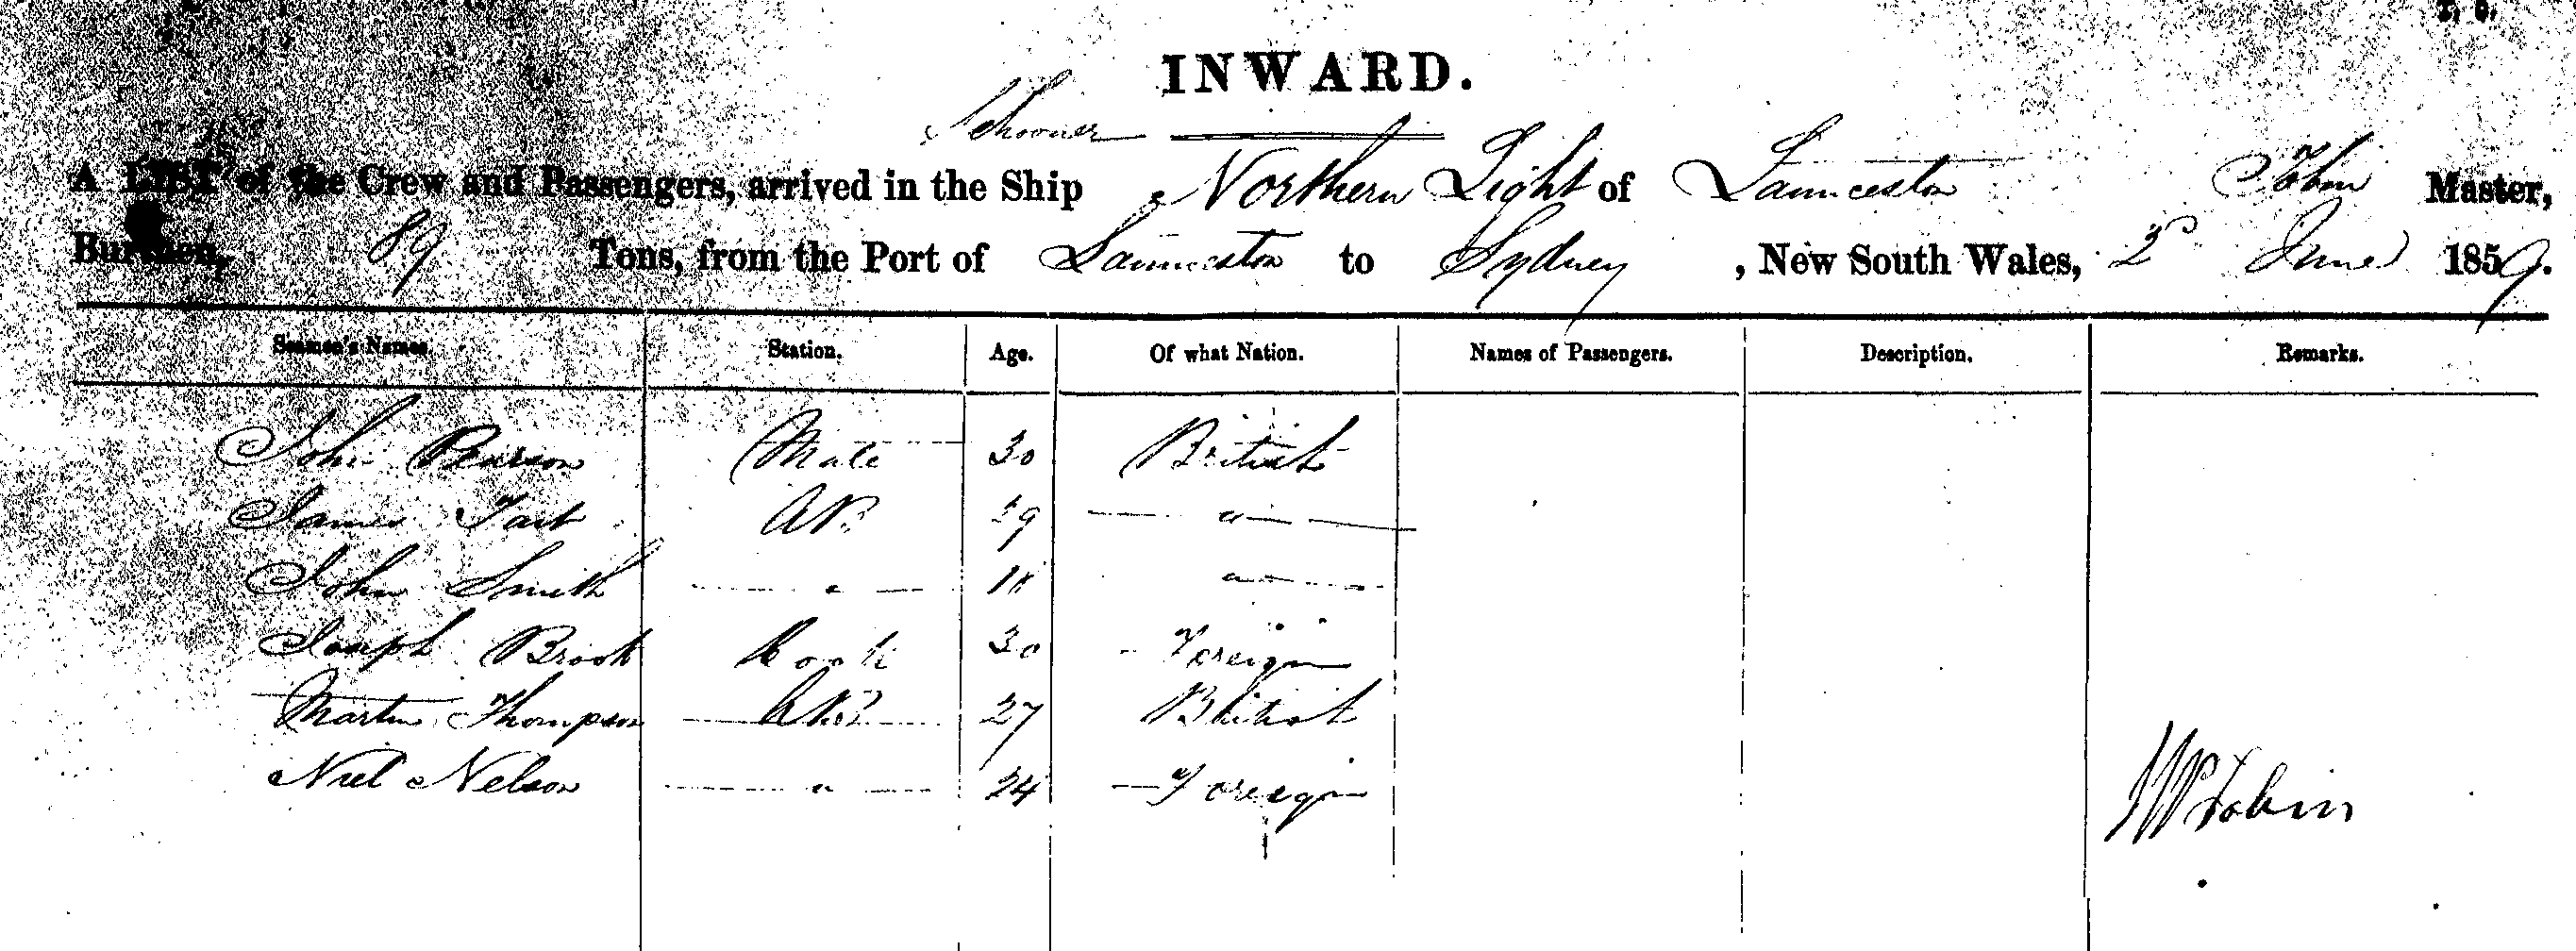 INWARD.
Schooner
A LIST of the Crew and Passengers, arrived in the Ship Northern Light of Launceston Master,
Burthen, 89 Tons, from the Port of Launceston to Sydney, New South Wales, 2d June 1859.
Seamen's Names. Station. Age. Of what Nation. Names of Passengers. Description. Remarks.
John Pearson Mate 30 British
James Tait AB. 29 — " —
John Smith — " — 18 — " —
Joseph Brook Cook 30 Foreign
Martin Thompson AB 27 British
Niel Nelson — " — 24 Foreign
Tobin